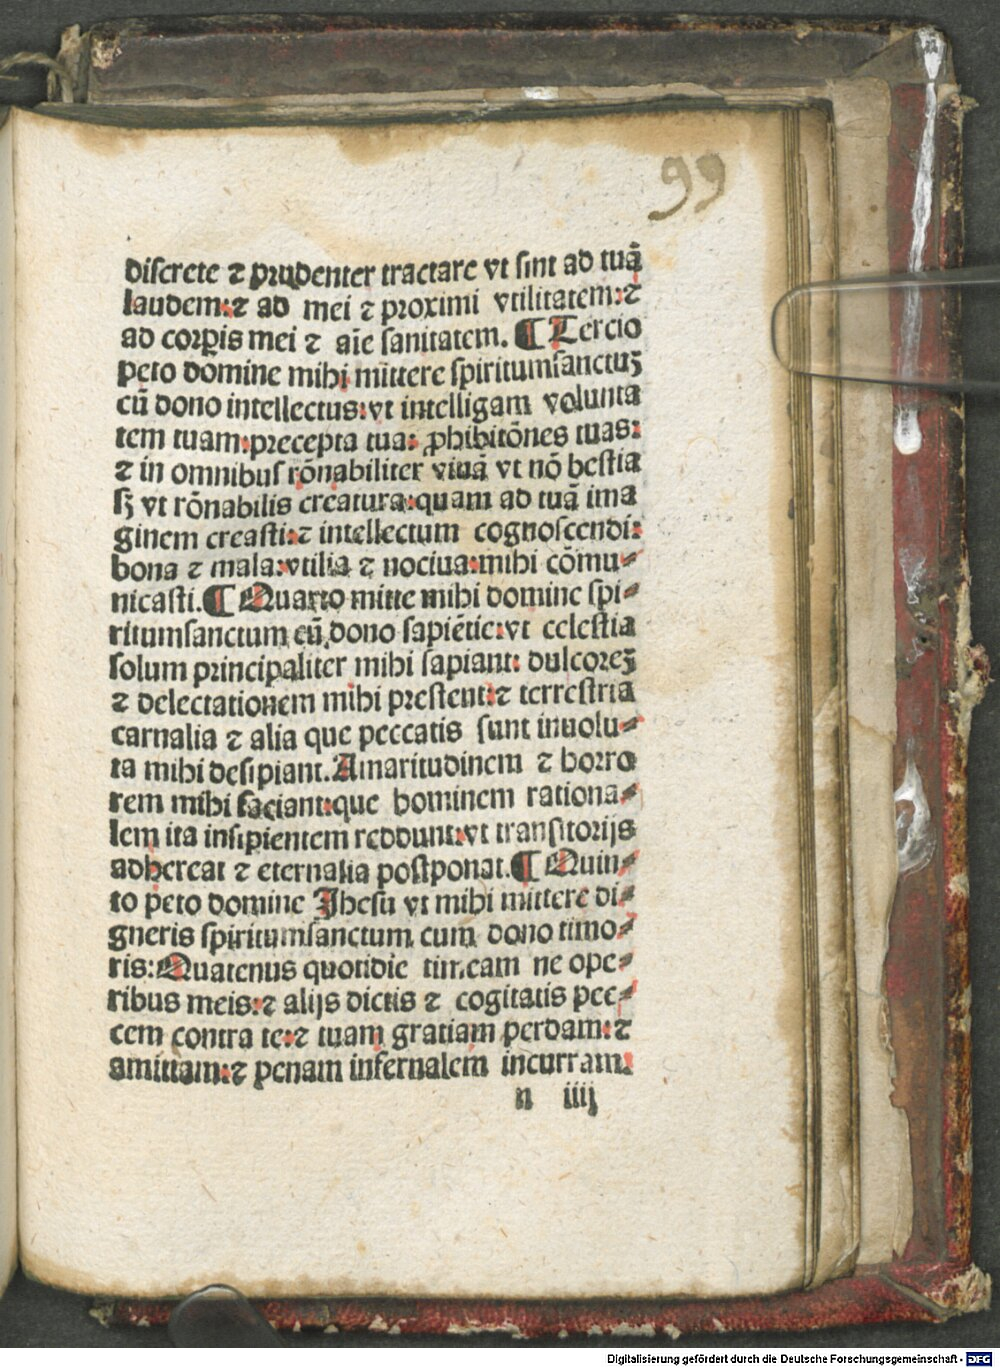 99
discrete ⁊ prudenter tractare vt sint ad tuā
laudem:⁊ ad mei ⁊ proximi vtilitatem:⁊
ad corꝑis mei ⁊ aīe sanitatem. ¶ Tercio
peto domine mihi mittere spiritumsanctuꝫ
cū dono intellectus:vt intelligam volunta
tem tuam:precepta tua: ꝓhibitōnes tuas:
⁊ in omnibus rōnabiliter viuā vt nō bestia
sꝫ vt rōnabilis creatura:quam ad tuā ima
ginem creasti:⁊ intellectum cognoscendi:
bona ⁊ mala:vtilia ⁊ nociua:mihi cōmu⸗
nicasti.¶ Quarto mitte mihi domine spi⸗
ritumsanctum cū dono sapiētie:vt celestia
solum principaliter mihi sapiant: dulcoreꝫ
⁊ delectationem mihi prestent:⁊ terrestria
carnalia ⁊ alia que peccatis sunt inuolu⸗
ta mihi desipiant.Amaritudinem ⁊ horro
rem mihi faciant:que hominem rationa⸗
lem ita insipientem reddunt:vt transitorijs
adhereat ⁊ eternalia postponat.¶ Quin⸗
to peto domine Jhesu vt mihi mittere di⸗
gneris spiritumsanctum cum dono timo⸗
ris:Quatenus quotidie timeam ne ope⸗
ribus meis:⁊ alijs dictis ⁊ cogitatis pec⸗
cem contra te:⁊ tuam gratiam perdam:⁊
amittam:⁊ penam infernalem incurram.
n iiij
Digitalisierung gefördert durch die Deutsche Forschungsgemeinschaft - DFG